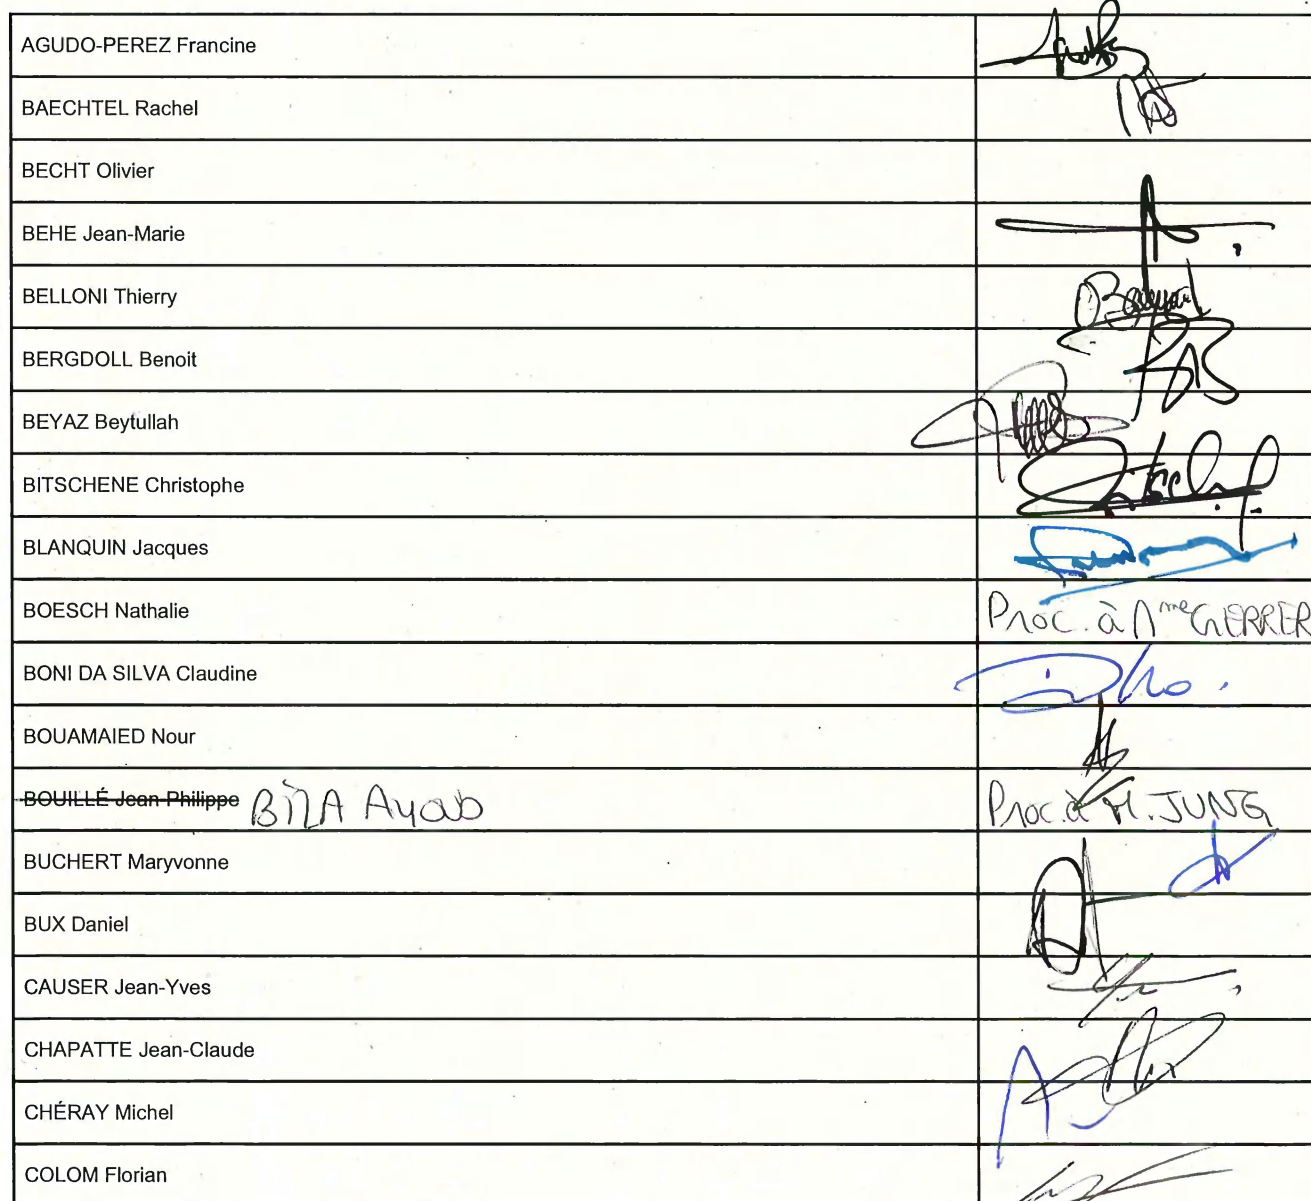 AGUDO-PEREZ Francine
BAECHTEL Rachel
BECHT Olivier
BEHE Jean-Marie
BELLONI Thierry
BERGDOLL Benoit
BEYAZ Beytullah
BITSCHENE Christophe
BLANQUIN Jacques
BOESCH Nathalie Proc. à Mme GERRER
BONI DA SILVA Claudine
BOUAMAIED Nour
BOUILLÉ Jean-Philippe Ayoub Proc. à M. JUNG
BUCHERT Maryvonne
BUX Daniel
CAUSER Jean-Yves
CHAPATTE Jean-Claude
CHÉRAY Michel
COLOM Florian